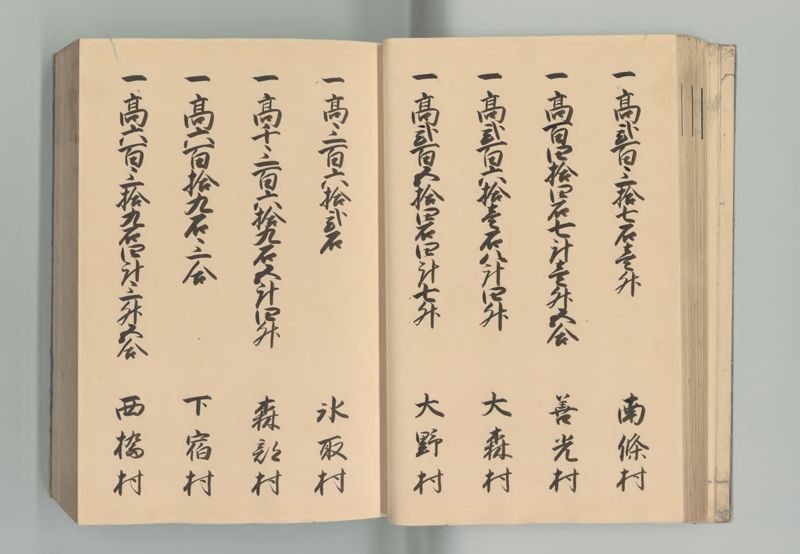 一高弐百三拾七石壱升 南條村
一高百四拾四石七斗壱升五合 善光村
一高弐百六拾壱石八斗四升 大森村
一高弐百五拾四石四斗七升 大野村
一高三百六拾弐石 氷取村
一高千三百六拾九石五斗四升 森部村
一高六百拾九石三合 下宿村
一高六百三拾九石四斗三升五合 西橋村